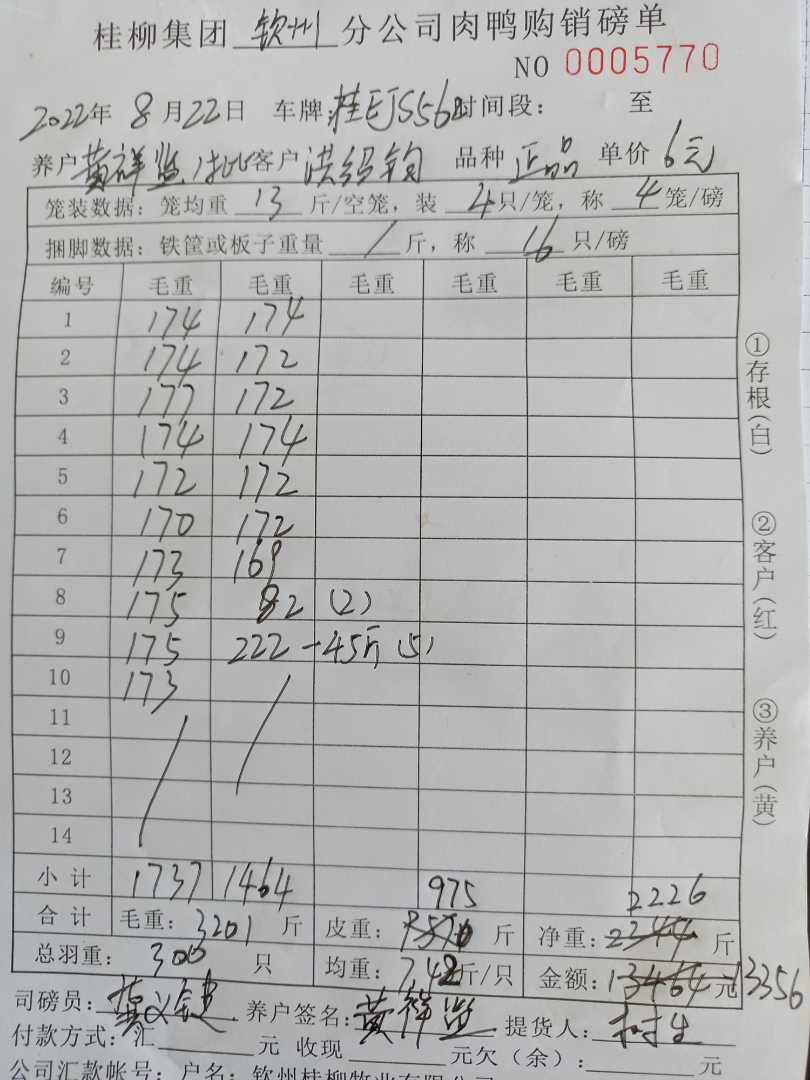 桂柳集团 钦州 分公司肉鸭购销磅单
NO 0005770
2022年 8月22日 车牌:桂EJS562 时间段: 至
养户 黄祥 客户 洪绍钧 品种 正品 单价 6元
笼装数据:笼均重 13 斤/空笼,装 4 只/笼,称 4 笼/磅
捆脚数据:铁筐或板子重量 / 斤,称 16 只/磅
编号 毛重 毛重 毛重 毛重 毛重 毛重
1 174 174
2 174 172
3 177 172
4 174 174
5 172 172
6 170 172
7 173 169
8 175 82 (2)
9 175 222 -45斤 (5)
10 173
11
12
13
14
小计 1737 1464
975 2226
合计 毛重:3201 斤 皮重: 斤 净重:2344 斤
总羽重:300 只 均重:7.42斤/只 金额:13464元 13356
司磅员: 养户签名:黄祥 提货人:
付款方式:汇 元 收现 元欠(余): 元
公司汇款帐号:户名:钦州桂柳牧业有限公司
①存根(白)
②客户(红)
③养户(黄)